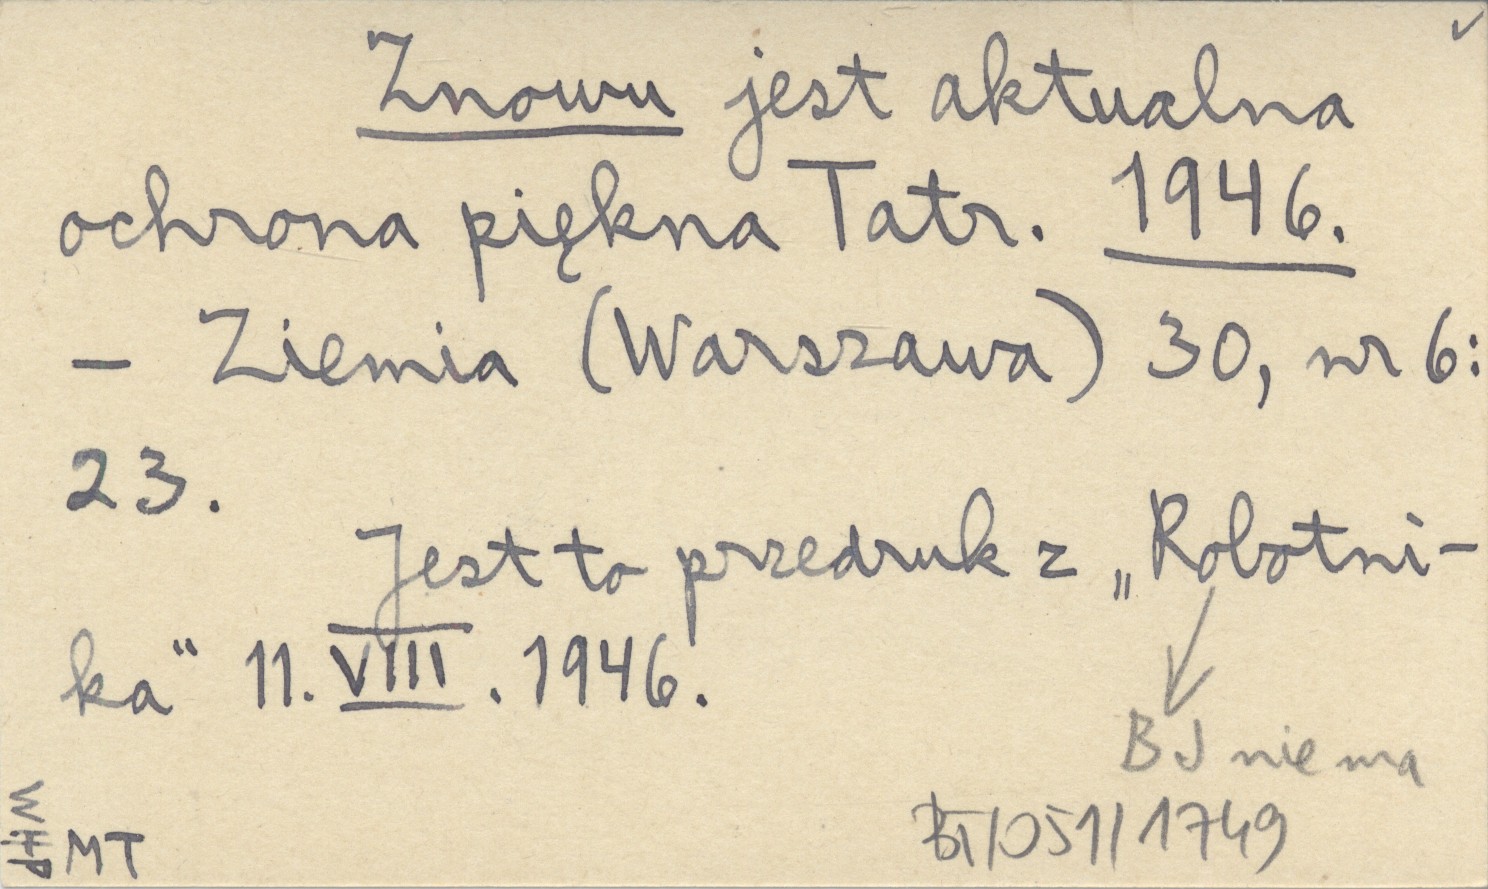 Znowu jest aktualna
ochrona piękna Tatr. 1946.
– Ziemia (Warszawa) 30, nr 6:
23.
Jest to przedruk z „Robotni-
ka" 11. VIII. 1946.
BJ nie ma
BT/051/1749
MT